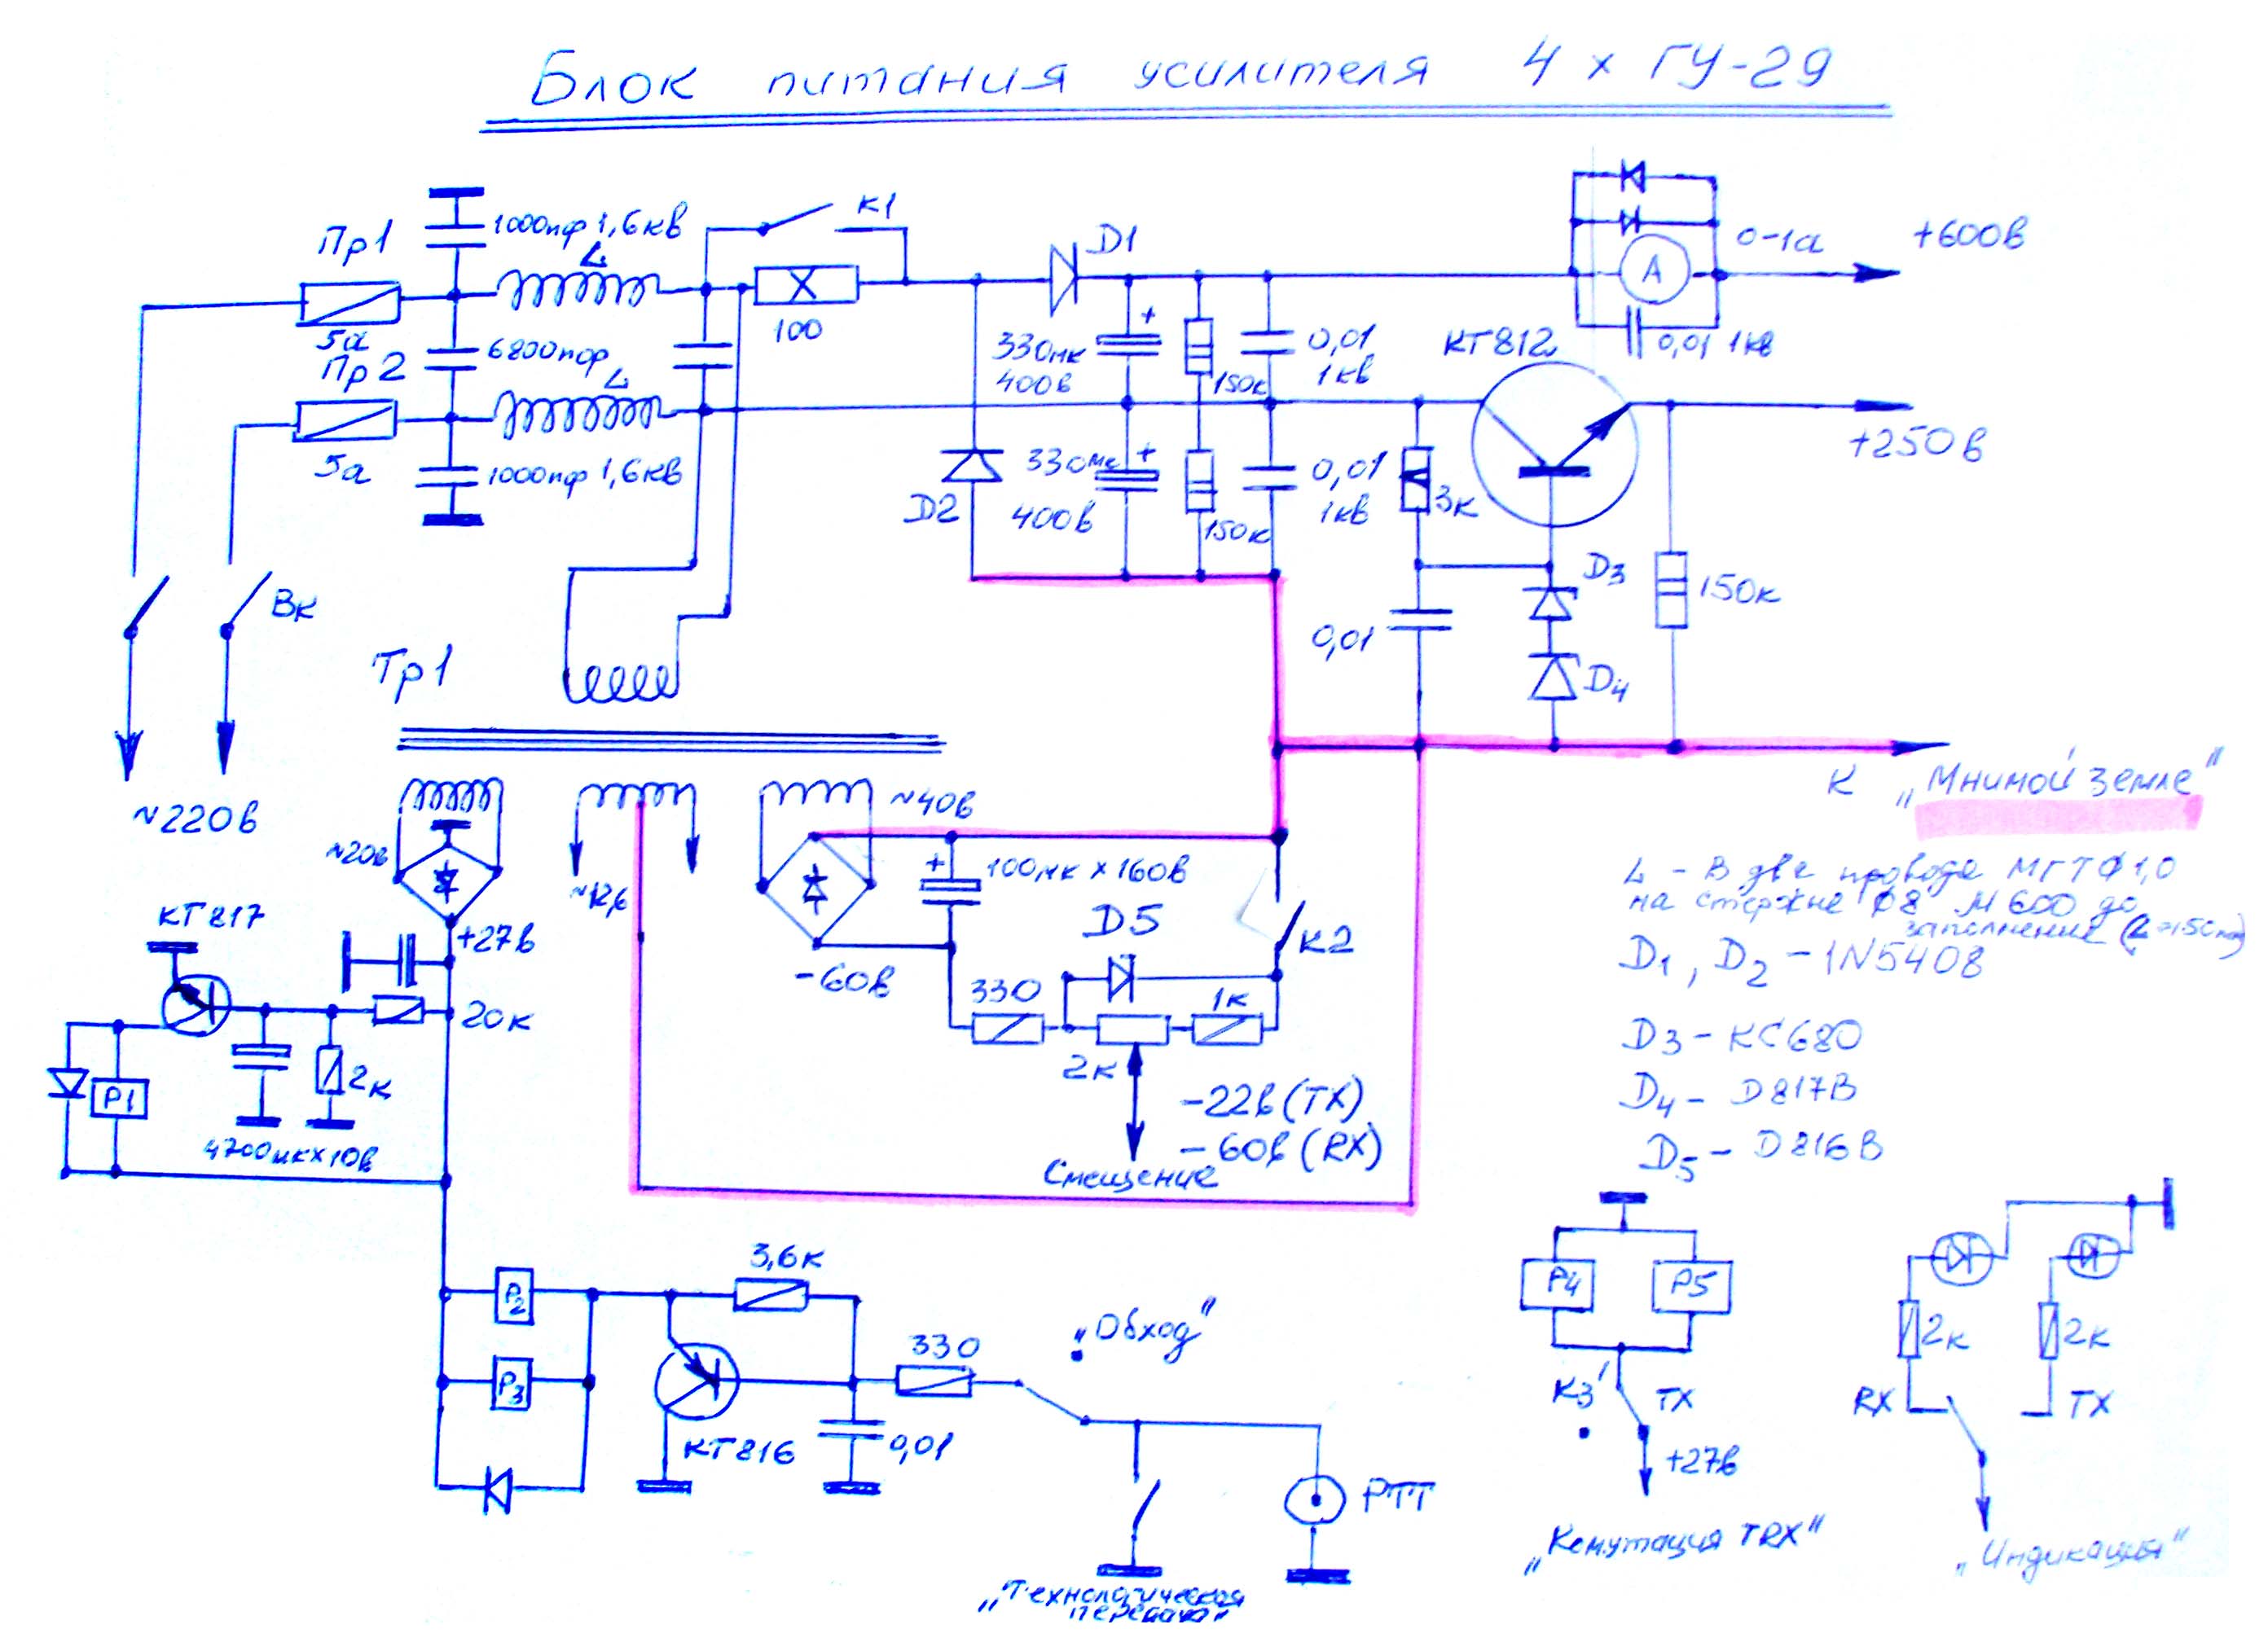 Блок питания усилителя 4 х ГУ-29
1000пф 1,6кв
К1
Пр1
L
D1
0-1а
+600в
А
5а
100
Пр2
6800пф
L
330мк
400в
150к
0,01
1кв
КТ812
0,01 1кв
5а
1000пф 1,6кв
D2
330мк
400в
150к
0,01
1кв
3к
+250в
Вк
D3
150к
0,01
Тр1
D4
К „Мнимой земле"
~220в
~20в
~12,6
~40в
100мк х 160в
L - В два провода МГТФ 1,0
на стержне Ф8 М600 до
заполнения
КТ817
+27в
D5
К2
-60в
D1, D2 - 1N5408
20к
330
1к
D3 - КС680
Р1
2к
2к
-22в (TX)
D4 - D817В
4700мкх10в
-60в (RX)
Смещение
D5 - D816В
3,6к
Р2
„Обход"
Р4
Р5
330
2к
2к
Р3
К3'
TX
RX
TX
КТ816
0,01
+27в
РТТ
„Комутация TRX"
„Индикация"
„Технологическая
передача"